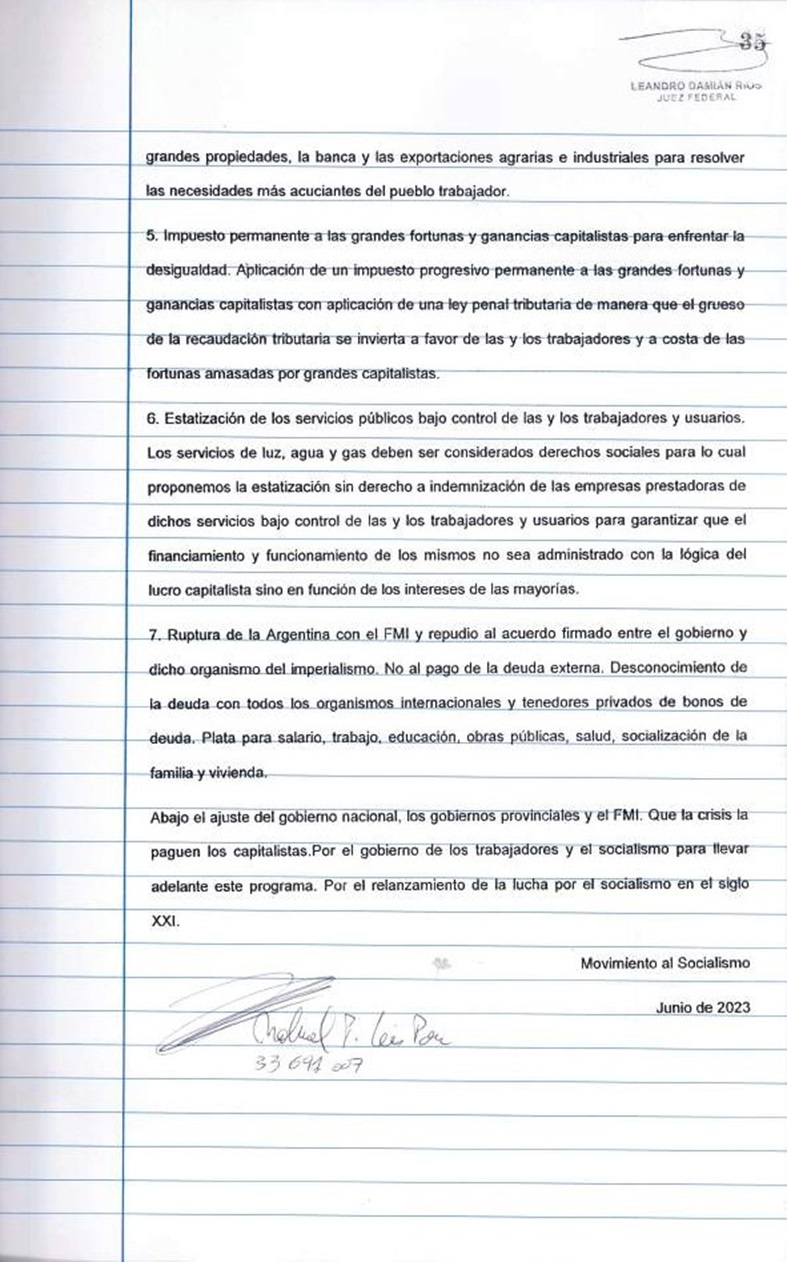 35
LEANDRO DAMIÁN RIOS
JUEZ FEDERAL
grandes propiedades, la banca y las exportaciones agrarias e industriales para resolver
las necesidades más acuciantes del pueblo trabajador.
5. Impuesto permanente a las grandes fortunas y ganancias capitalistas para enfrentar la
desigualdad. Aplicación de un impuesto progresivo permanente a las grandes fortunas y
ganancias capitalistas con aplicación de una ley penal tributaria de manera que el grueso
de la recaudación tributaria se invierta a favor de las y los trabajadores y a costa de las
fortunas amasadas por grandes capitalistas.
6. Estatización de los servicios públicos bajo control de las y los trabajadores y usuarios.
Los servicios de luz, agua y gas deben ser considerados derechos sociales para lo cual
proponemos la estatización sin derecho a indemnización de las empresas prestadoras de
dichos servicios bajo control de las y los trabajadores y usuarios para garantizar que el
financiamiento y funcionamiento de los mismos no sea administrado con la lógica del
lucro capitalista sino en función de los intereses de las mayorías.
7. Ruptura de la Argentina con el FMI y repudio al acuerdo firmado entre el gobierno y
dicho organismo del imperialismo. No al pago de la deuda externa. Desconocimiento de
la deuda con todos los organismos internacionales y tenedores privados de bonos de
deuda. Plata para salario, trabajo, educación, obras públicas, salud, socialización de la
familia y vivienda.
Abajo el ajuste del gobierno nacional, los gobiernos provinciales y el FMI. Que la crisis la
paguen los capitalistas.Por el gobierno de los trabajadores y el socialismo para llevar
adelante este programa. Por el relanzamiento de la lucha por el socialismo en el siglo
XXI.
Movimiento al Socialismo
Junio de 2023
33 691 007